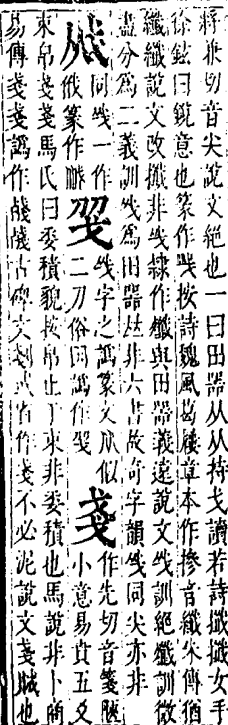 將兼切音尖說文絕也一曰田器从从持戈讀若詩攕攕女手
徐鉉曰銳意也篆作㦰按詩魏風葛屨章本作摻音纖朱傳猶
纖纖說文改攕非㦰隸作殲與田器義遠說文㦰訓絕殲訓微
盡分爲二義訓㦰爲田器𠀤非六書故奇字韻㦰同尖亦非
同㦰一作
篆作
㦰字之譌篆文从似
二刀俗因譌作㦰
戔
作先切音箋
小意易賁五爻
束帛戔戔馬氏曰委積貌按帛止于束非委積也馬說非卜商
易傳戔戔譌作 古碑文 省作戔不必泥說文戔賊也